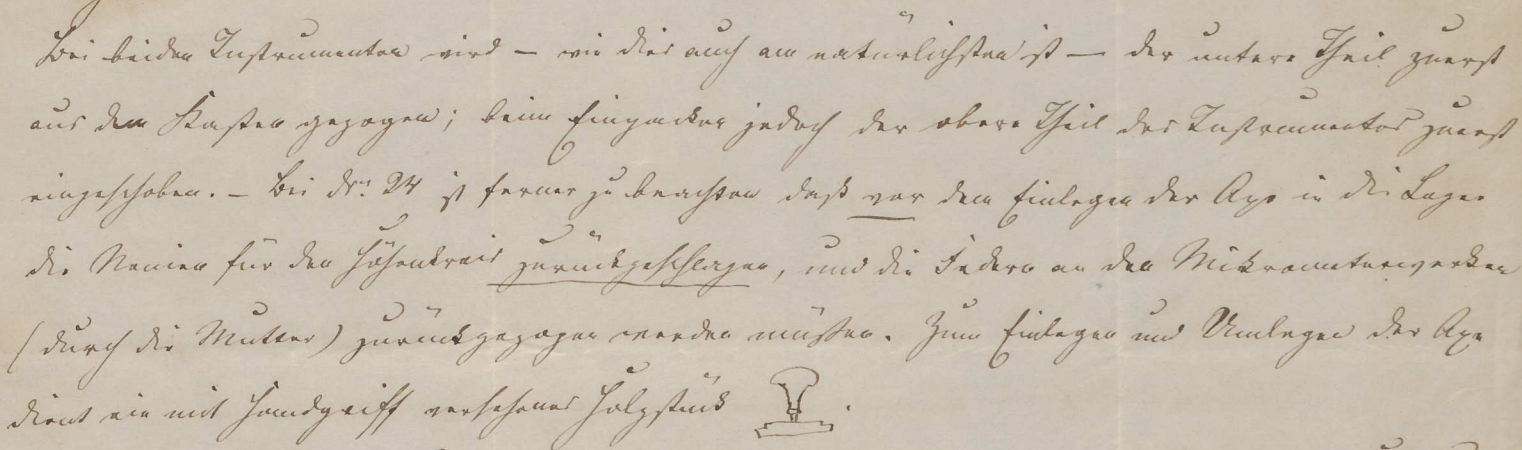 Bei beiden Instrumenten wird – wie dies auch am natürlichsten ist – der untere Theil zuerst
aus dem Kasten gezogen; beim Einpacken jedoch der obere Theil des Instrumentes zuerst
eingeschoben. – Bei Nro. 24 ist ferner zu beachten daß vor dem Einlegen der Axe in die Lager
die Nonien für den Höhenkreis zurückgeschlagen, und die Federn an den Mikrometerwerken
(durch die Mutter) zurückgezogen werden müssen. Zum Einlegen und Umlegen der Axe
dient ein mit Handgriff versehenes Holzstück .